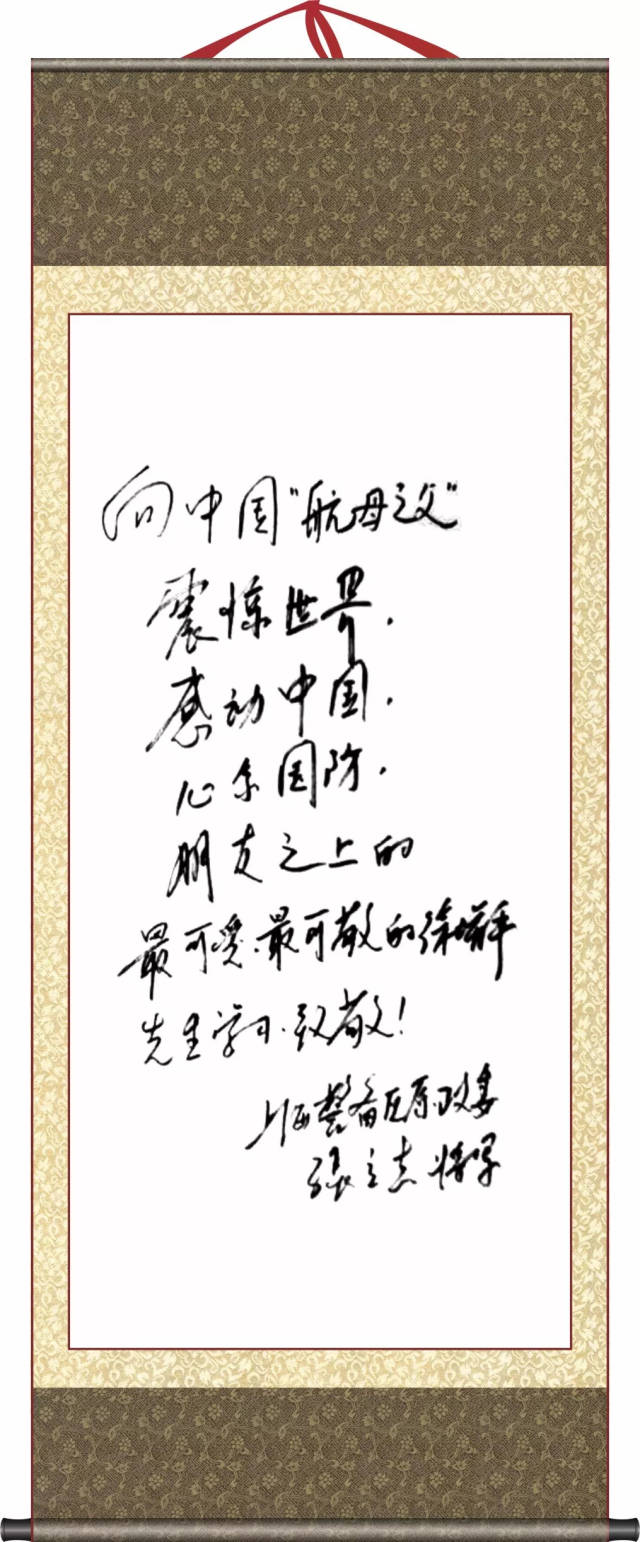 向中国"航母之父"
震惊世界，
感动中国，
心系国防，
朋友之上的
最可爱、最可敬的徐增平
先生学习、致敬！
上海警备区原政委
张立志将军